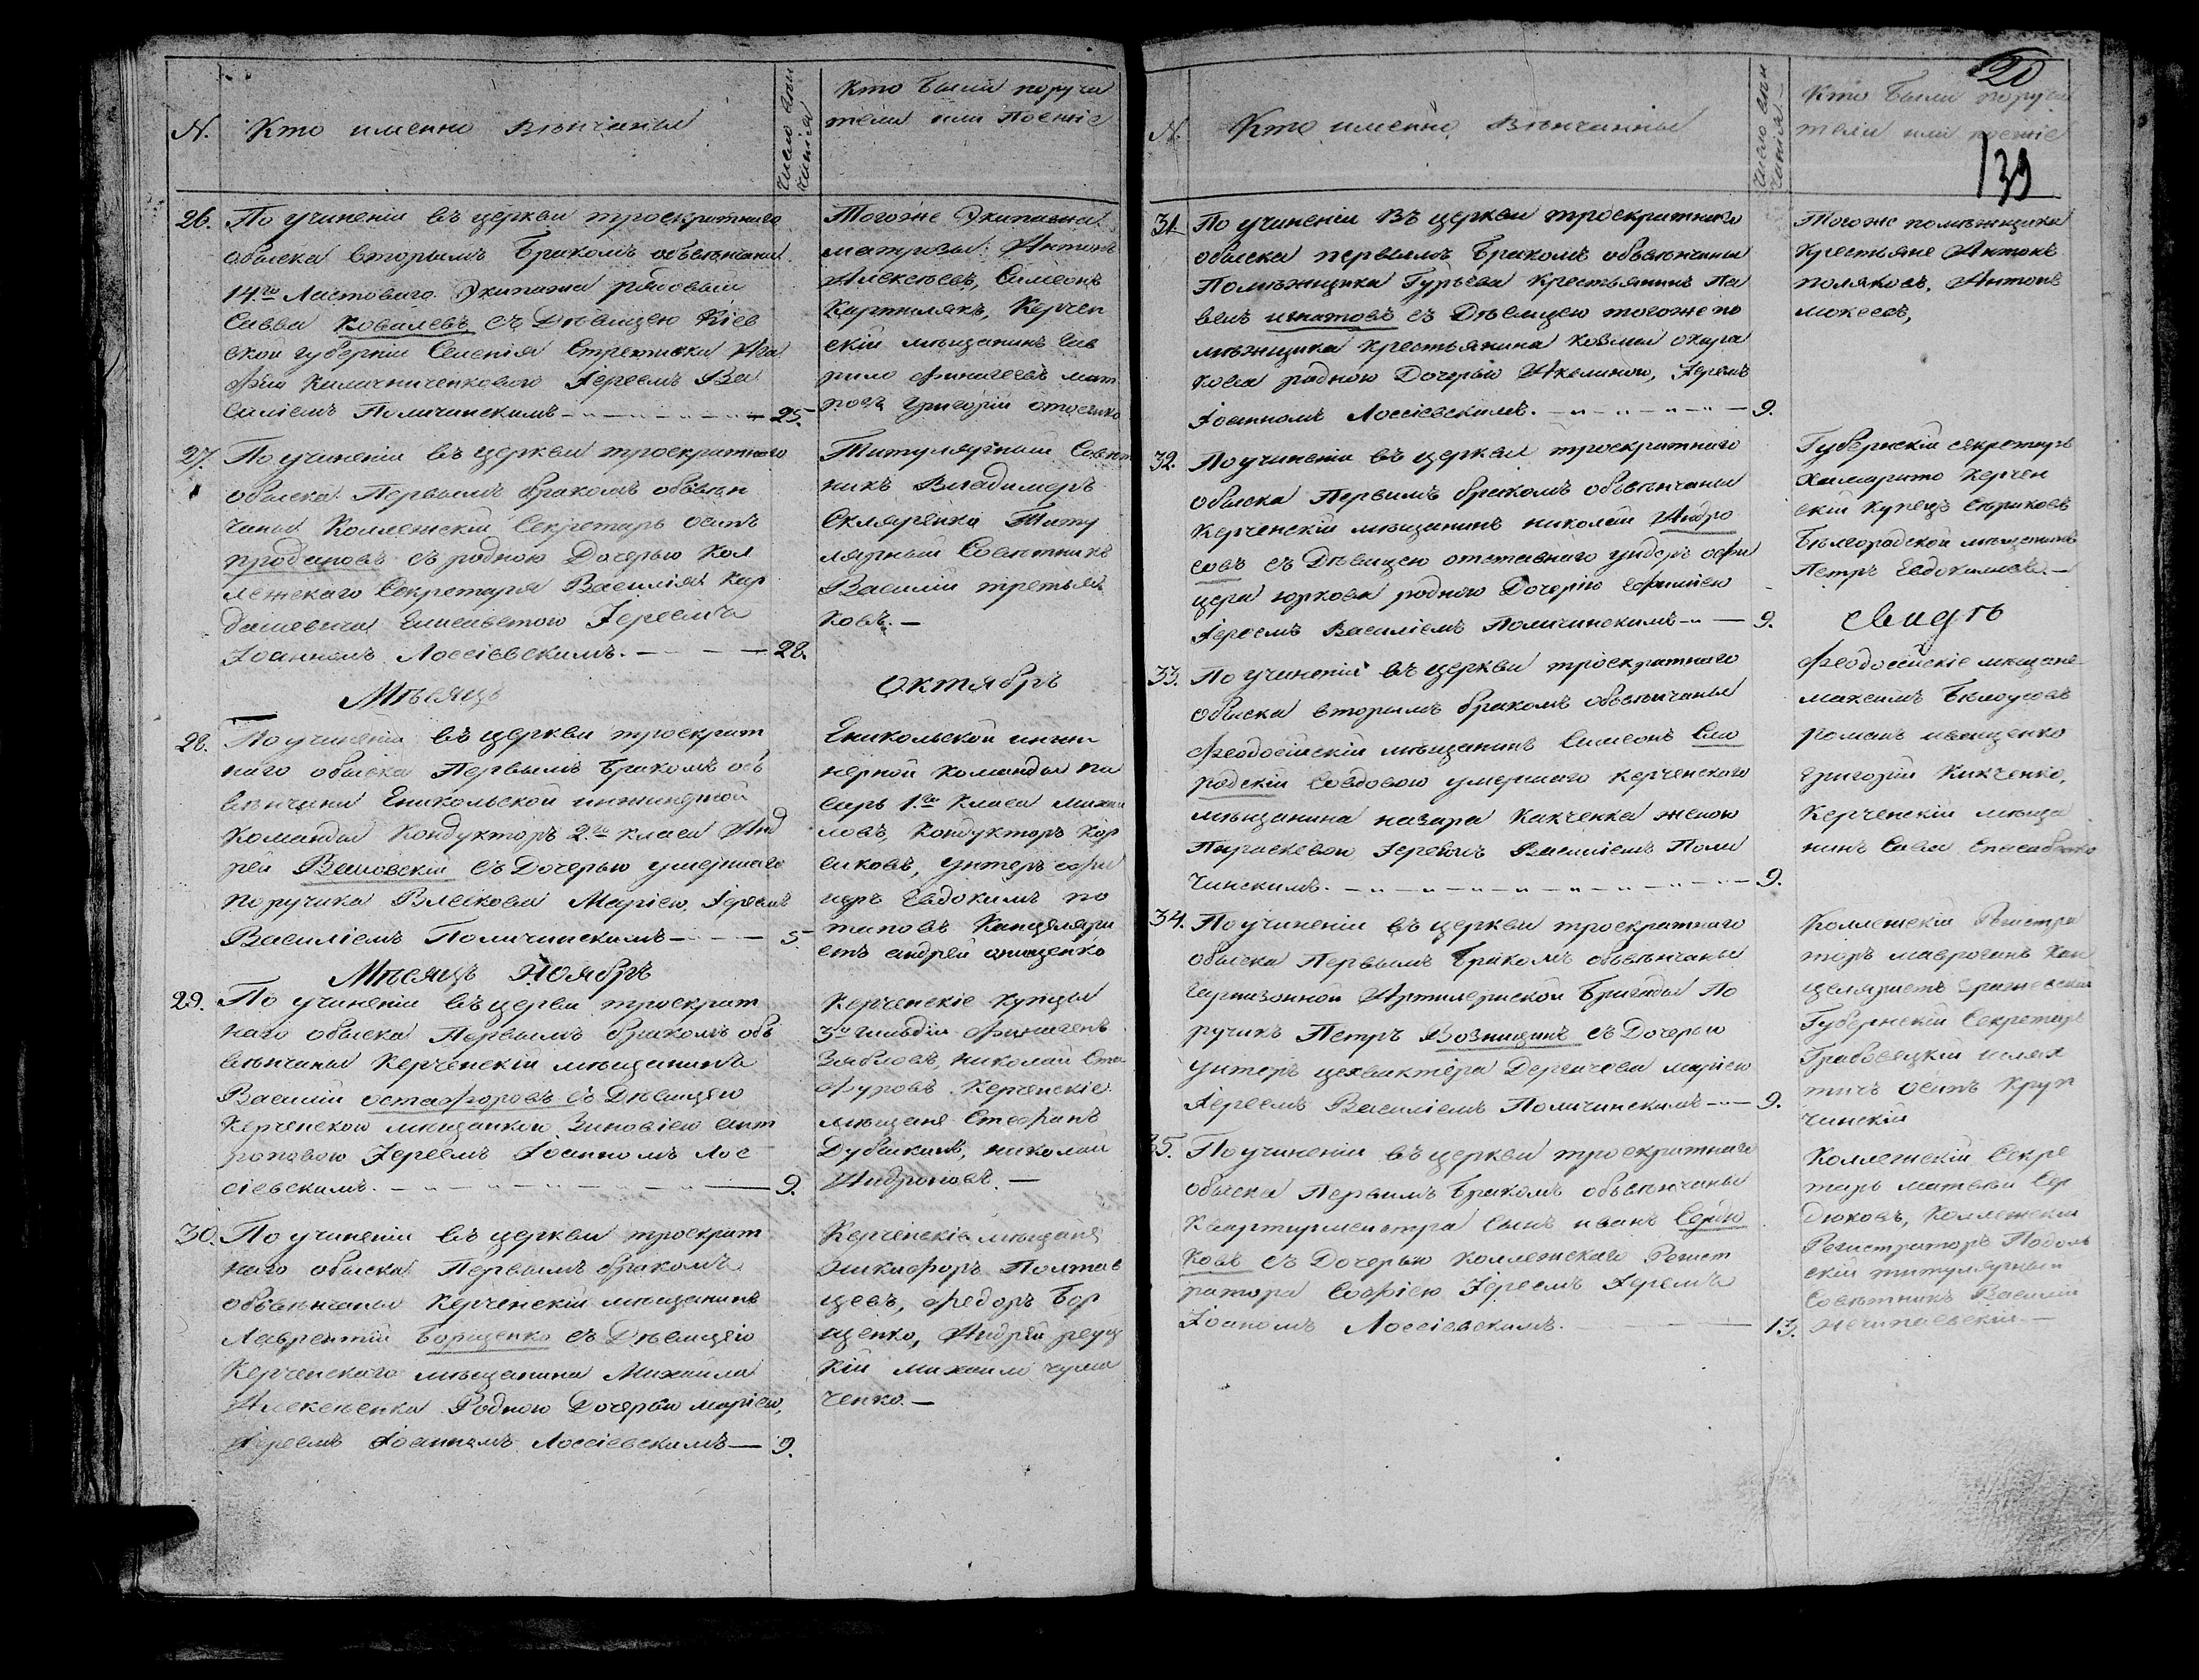 N.
Кто именно Вѣнчаны
число вѣн
чанія
Кто были поручи
тели или Поѣжіе
26. По учиненіи въ церкви троекратнаго
обыска вторымъ бракомъ обвѣнчаны
14го Ластоваго Экипажа рядовый
Савва Ковалевъ съ Дѣвицею Кіев
ской губерніи Селенія
Іереемъ Ва
силіемъ Поличинскимъ 25.
Тогоже Экипажа
матрозы: Антонъ
Алексѣевъ, Симеонъ
Керчен
скій мѣщанинъ Гав
рило мат
розъ Григорій
27. По учиненіи въ церкви троекратнаго
обыска Первымъ бракомъ обвѣн
чаны Коллежскій Секретарь Осипъ
продановъ съ родною Дочерью Кол
лежскаго Секретаря Василія Кар
дашевича Елисаветою Іереемъ
Іоанномъ Лоссіевскимъ. 28.
Титулярный Совѣт
никъ Владимеръ
Скляренко Титу
лярный Совѣтникъ
Василій третья
ковъ.
Мѣсяцъ
октябрь
28. По учиненіи въ церкви троекрат
наго обыска Первымъ бракомъ об
вѣнчаны Еникольской инжинерной
Команды Кондукторъ 2го класа Анд
рей съ Дочерью умершаго
поручика Марією Іереемъ
Василіемъ Поличинскимъ 5
Еникольской инжи
нерной Команды пи
сарь 1го Класа Михаи
ловъ, Кондукторъ Кор
саковъ, унтеръ офи
церъ Евдокимъ по
таповъ Канцеляри
стъ андрей онищенко
Мѣсяцъ Ноябрь
29. По учиненіи въ церкви троекрат
наго обыска Первымъ бракомъ об
вѣнчаны Керченскій мѣщанинъ
Василій остафоровъ съ Дѣвицею
Керченскою мѣщанкою Зиновією ант
роповою Іереемъ Іоанномъ Лос
сіевскимъ. 9.
Керченскіе Купцы
3й гильдіи
Николай Ста
фуровъ Керченскіе
мѣщане Стефанъ
Дубаскинъ, николай
Андроновъ.
30. По учиненіи въ церкви троекрат
наго обыска Первымъ бракомъ
обвѣнчаны Керченскій мѣщанинъ
Лаврентій Борщенко съ Дѣвицею
Керченскаго мѣщанина Михаила
Алексѣенка Родною Дочерью Марією,
Іереемъ Іоанномъ Лоссіевскимъ 9.
Керченскіе мѣщане
Никифоръ Полтав
цевъ, федоръ Бор
щенко, Андрей реуц
кій михаило чума
ченко.
20
139
N.
Кто именно Вѣнчанны
число вѣн
чанія
Кто были поручи
тели или поѣжіе
31. По учиненіи въ церкви троекратнаго
обыска первымъ бракомъ обвѣнчаны
Помѣжщика Гурьева Крестьянинъ Па
велъ игнатовъ съ Дѣвицею тогоже по
мѣжщика крестьянина Козмы
родною Дочерью Акелиною, Іереемъ
Іоанномъ Лоссіевскимъ. 9.
Тогоже помѣжщика
Крестьяне Антонъ
поляковъ, Антонъ
мокеевъ,
32. По учиненіи въ церкви троекратнаго
обыска Первымъ бракомъ обвѣнчаны
Керченскій мѣщанинъ николай Андро
совъ съ Дѣвицею отставнаго ундеръ офи
цера юркова родною Дочерію Ефиміею
Іереемъ Василіемъ Поличинскимъ 9.
Губернскій секретарь
Керчен
скій Купецъ
Бѣлгородской мѣщанинъ
Петръ Евдокимовъ.
33. По учиненіи въ церкви троекратнаго
обыска вторымъ бракомъ обвѣнчаны
феодосійскій мѣщанинъ Симеонъ Смо
родскій совдовою умершаго керченскаго
мѣщанина назара Какченка женою
Параскевою Іереемъ Василіемъ Поли
чинскимъ. 9.
феодосійскіе мѣщане
максимъ Бѣлоусовъ
романъ иващенко
григорій Какченко,
Керченскій мѣща
нинъ Сава
34. По учиненіи въ церкви троекратнаго
обыска Первымъ бракомъ обвѣнчаны
Гарнизонной Артилерійской Бригады По
ручикъ Петръ Возницинъ съ Дочерью
унтеръ цехвахтера Дергачева Марією
Іереемъ Василіемъ Поличинскимъ 9.
Коллежскій Регистра
торъ Кан
целяристъ
Губернскій Секретарь
Грабовецкій шлях
тичъ осипъ Круп
чинскій
35. По учиненіи въ церкви троекратнаго
обыска Первымъ бракомъ обвѣнчаны
Квартирмейстра сынъ иванъ Сердю
ковъ съ Дочерью Коллежскаго Регист
ратора Софією Іереемъ Іереемъ
Іоаномъ Лоссіевскимъ. 13.
Коллежскій Секре
тарь матвѣй Сер
дюковъ, Коллежскій
Регистраторъ Подоль
скій титулярный
Совѣтникъ Василій